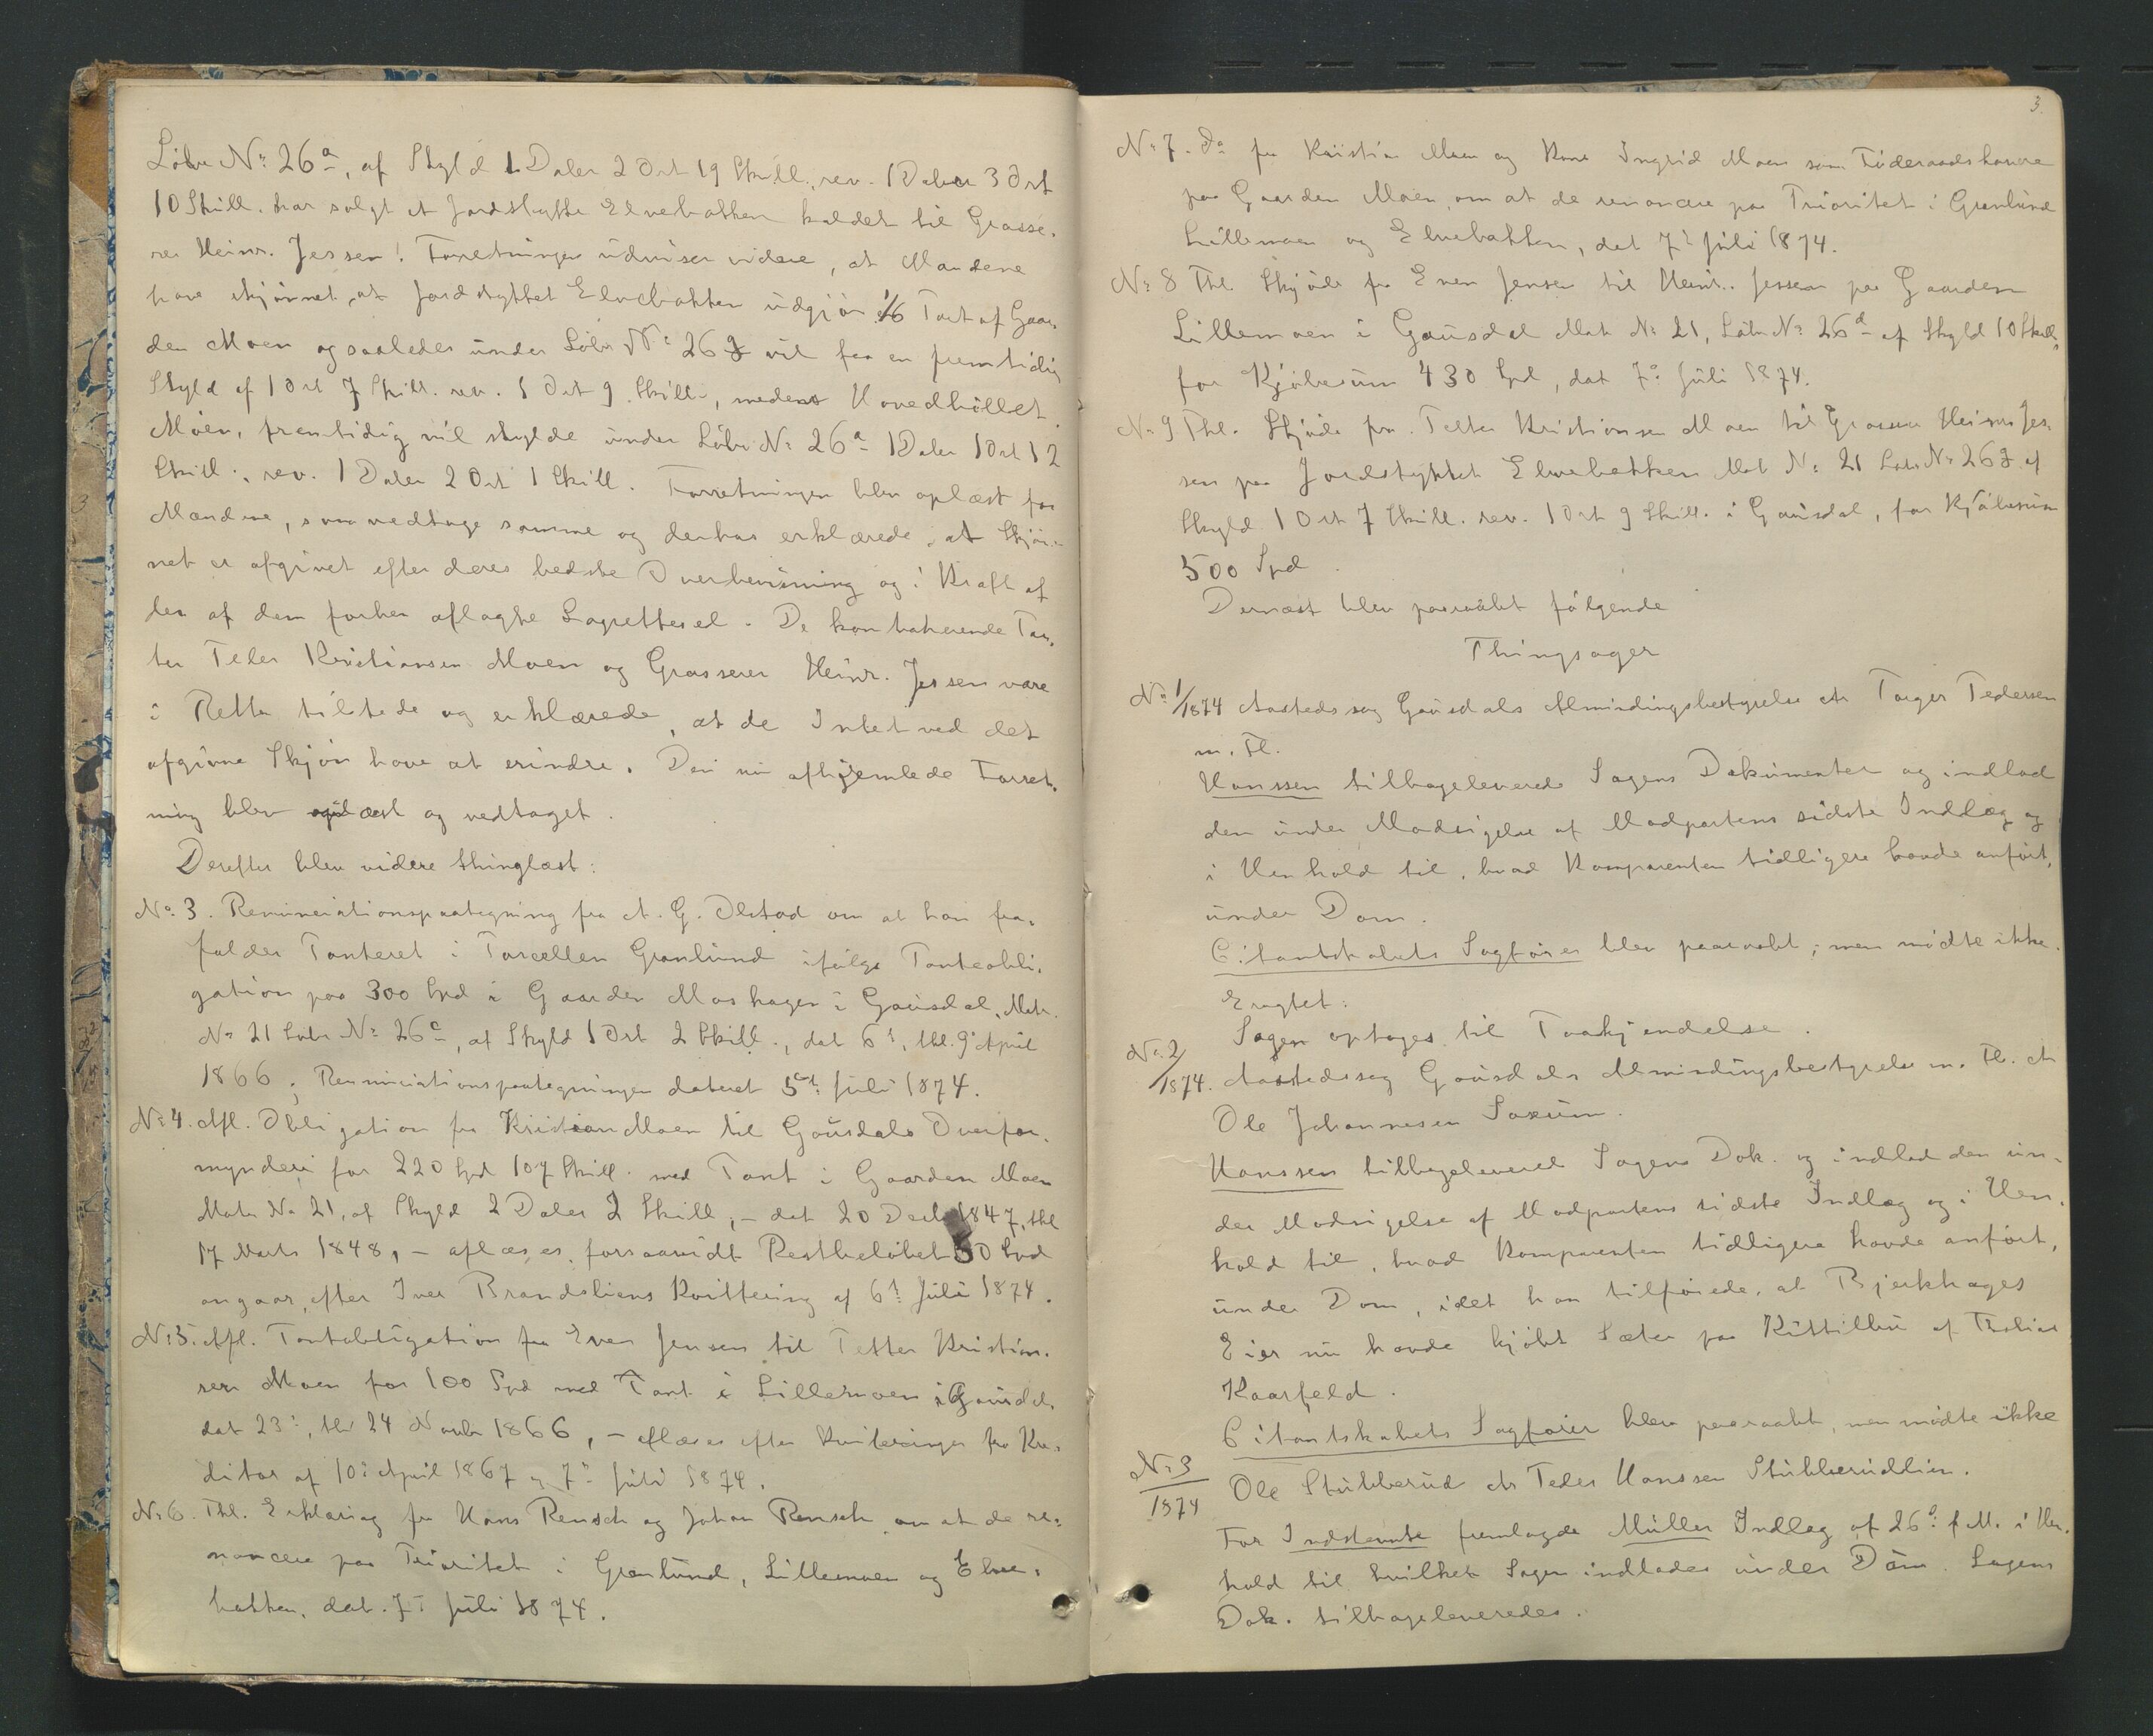 Löbe No 26a, af Skyld 1 Daler 2 Ort 19 Skill., rev. 1 Daler 3 Ort
10 Skill. har solgt et Jordstykke Elvebakken kaldet til Grosse-
rer Heinr. Jessen! Forretningen udviser videre, at Mændene
have skjönnet, at Jordstykket Elvebakken udgjör 1/6 Part af Gaar-
den Moen og saaledes under Löbe No 26g vil faa en fremtidig
Skyld af 1 Ort 7 Skill. rev. 1 Ort 9 Skill., medens Hovedböllet
Moen, fremtidig vil skylde under Löbe No 26a 1 Daler 1 Ort 12
Skill., rev. 1 Daler 2 Ort 1 Skill. Forretningen blev oplæst for
Mændene, som vedtoge samme og derhos erklærede, at Skjön-
net er afgivet efter deres bedste Overbevisning og i Kraft af
den af dem forhen aflagte Lagrettesed. De kontraherende Par-
ter Peder Kristiansen Moen og Grosserer Heinr. Jessen vare
i Rette tilstede og erklærede, at de Intet ved det
afgivne Skjön have at erindre. Den nu afhjemlede Forret-
ning blev oplæst og vedtaget.
Derefter blev videre thinglæst:
No 3. Renunciationspaategning fra A. G. Olstad om at han fra-
falder Panteret i Parcellen Grønlund ifölge Panteobli-
gation paa 300 Spd i Gaarden Moshagen i Gausdal, Matr.
No 21 Löbe No 26c, af Skyld 1 Ort 2 Skill., dat 6te, thl. 9de April
1866; Renunciationspaategningen dateret 5te Juli 1874.
No 4. Afl. Obligation fra Kristian Moen til Gausdals Overfor-
mynderi for 220 Spd 107 Skill. med Pant i Gaarden Moen
Matr No 21, af Skyld 2 Daler 2 Skill, - dat 20 Decbr 1847, thl
17 Marts 1848, - aflæses, forsaavidt Restbelöbet 50 Spd
angaar, efter Iver Brandsliens Kvittering af 6te Juli 1874.
No 5. Afl. Pantobligation fra Even Jensen til Petter Kristian-
sen Moen for 100 Spd med Pant i Lillemoen i Gausdal,
dat 23de, thl 24 Novbr 1866, - aflæses efter Kvitteringer fra Kre-
ditor af 10de April 1867 og 7de Juli 1874.
No 6. Thl. Erklæring fra Hans Rensch og Johan Rensch om at de re-
noncere paa Prioritet i Grønlund, Lillemoen og Elve-
bakken, dat. 7de Juli 1874.
3
No 7. Do fra Kristian Moen og Kone Ingrid Moen som Föderaadshavere
paa Gaarden Moen, om at de renoncere paa Prioritet i Grønlund
Lillemoen og Elvebakken, dat 7de Juli 1874.
No 8 Thl. Skjöde fra Even Jensen til Heinr. Jessen paa Gaarden
Lillemoen i Gausdal Mat No 21, Löbe No 26d af Skyld 10 Skill,
for Kjöbesum 430 Spd, dat 7de Juli 1874.
No 9 Thl. Skjöde fra Petter Kristiansen Moen til Grosserer Heinr Jes-
sen paa Jordstykket Elvebakken Mat No 21 Löbe No 26g af
Skyld 1 Ort 7 Skill. rev. 1 Ort 9 Skill. i Gausdal, for Kjöbesum
500 Spd.
Dernæst blev paaraabt fölgende
Thingsager
No 1/1874 Aastedssag Gausdals Almindingsbestyrelse ctr Torger Pedersen
m. Fl.
Hanssen tilbageleverede Sagens Dokumenter og indlod
den under Modsigelse af Modpartens sidste Indlæg og
i Henhold til, hvad Komparenten tidligere havde anfört,
under Dom.
Citantskabets Sagförer blev paaraabt; men mödte ikke.
Eragtet:
Sagen optages til Paakjendelse.
No 2/1874. Aastedssag Gausdals Almindingsbestyrelse m. Fl. ctr
Ole Johannesen Saxum.
Hanssen tilbageleverede Sagens Dok. og indlod den un-
der Modsigelse af Modpartens sidste Indlæg og i Hen-
hold til, hvad Komparenten tidligere havde anfört,
under Dom, idet han tilföiede, at Bjerkhages
Eier nu havde kjöbt Sæter paa Kittilbu af Tobias
Kaarfeld.
Citantskabets Sagförer blev paaraabt, men mödte ikke
No 3/1874 Ole Stubberud ctr Peder Hanssen Stubberudlien.
For Indstevnte fremlagde Müller Indlæg af 26de f. M. i Hen-
hold til hvilket Sagen indlodes under Dom. Sagens
Dok. tilbageleveredes.